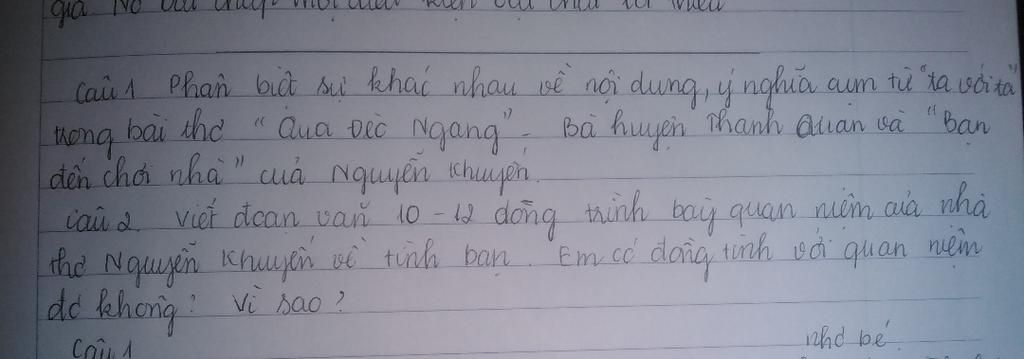 Câu 1 Phân biệt sự khác nhau về nội dung, ý nghĩa cụm từ "ta với ta"
trong bài thơ "Qua Đèo Ngang" - Bà huyện Thanh Quan và "Bạn
đến chơi nhà" của Nguyễn Khuyến.
Câu 2. Viết đoạn văn 10 - 12 dòng trình bày quan niệm của nhà
thơ Nguyễn Khuyến về tình bạn. Em có đồng tình với quan niệm
đó không? Vì sao?
Câu 1 nhỏ bé.